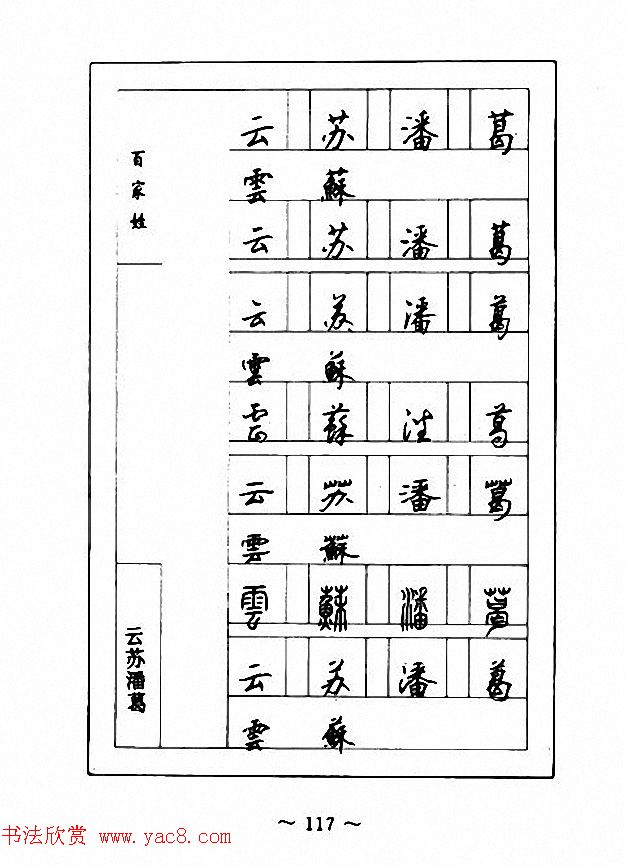 百家姓
云 苏 潘 葛
雲 蘇
云 苏 潘 葛
云 苏 潘 葛
雲 蘇
雲 蘇 潘 葛
云 苏 潘 葛
雲 蘇
雲 蘇 潘 葛
云 苏 潘 葛
雲 蘇
云苏潘葛
~ 117 ~
书法欣赏 www.yac8.com